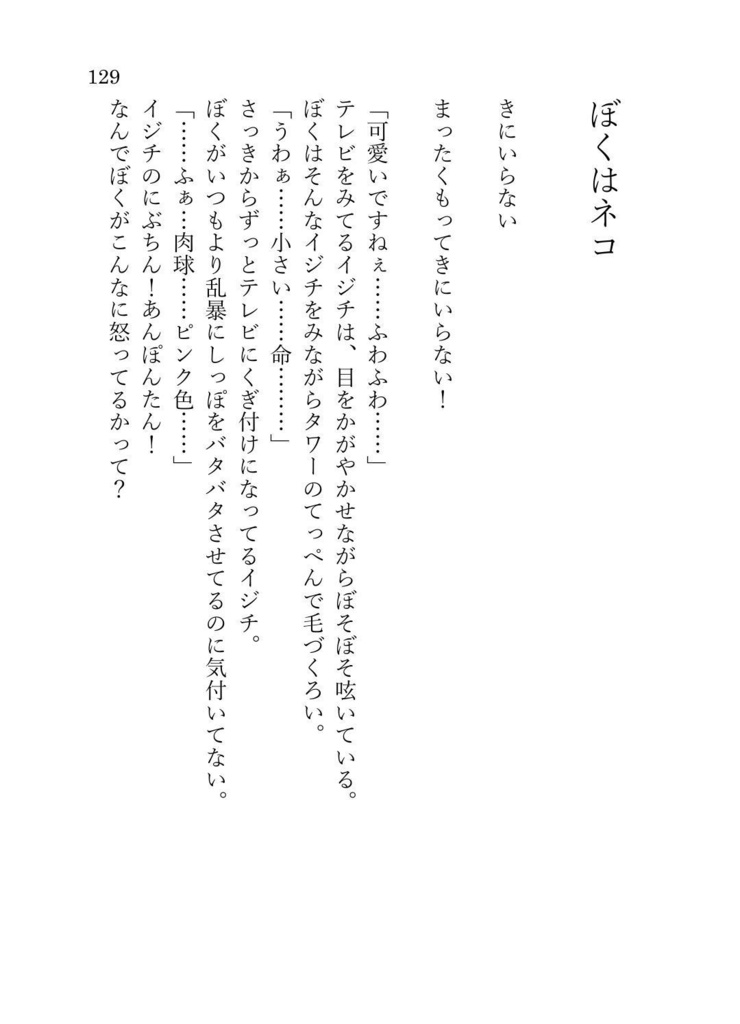 129
ぼくはネコ
きにいらない
まったくもってきにいらない！
「可愛いですねぇ……ふわふわ……」
テレビをみてるイジチは、目をかがやかせながらぼそぼそ呟いている。
ぼくはそんなイジチをみながらタワーのてっぺんで毛づくろい。
「うわぁ……小さい……命………」
さっきからずっとテレビにくぎ付けになってるイジチ。
ぼくがいつもより乱暴にしっぽをバタバタさせてるのに気付いてない。
「……ふぁ…肉球……ピンク色……」
イジチのにぶちん！あんぽんたん！
なんでぼくがこんなに怒ってるかって？